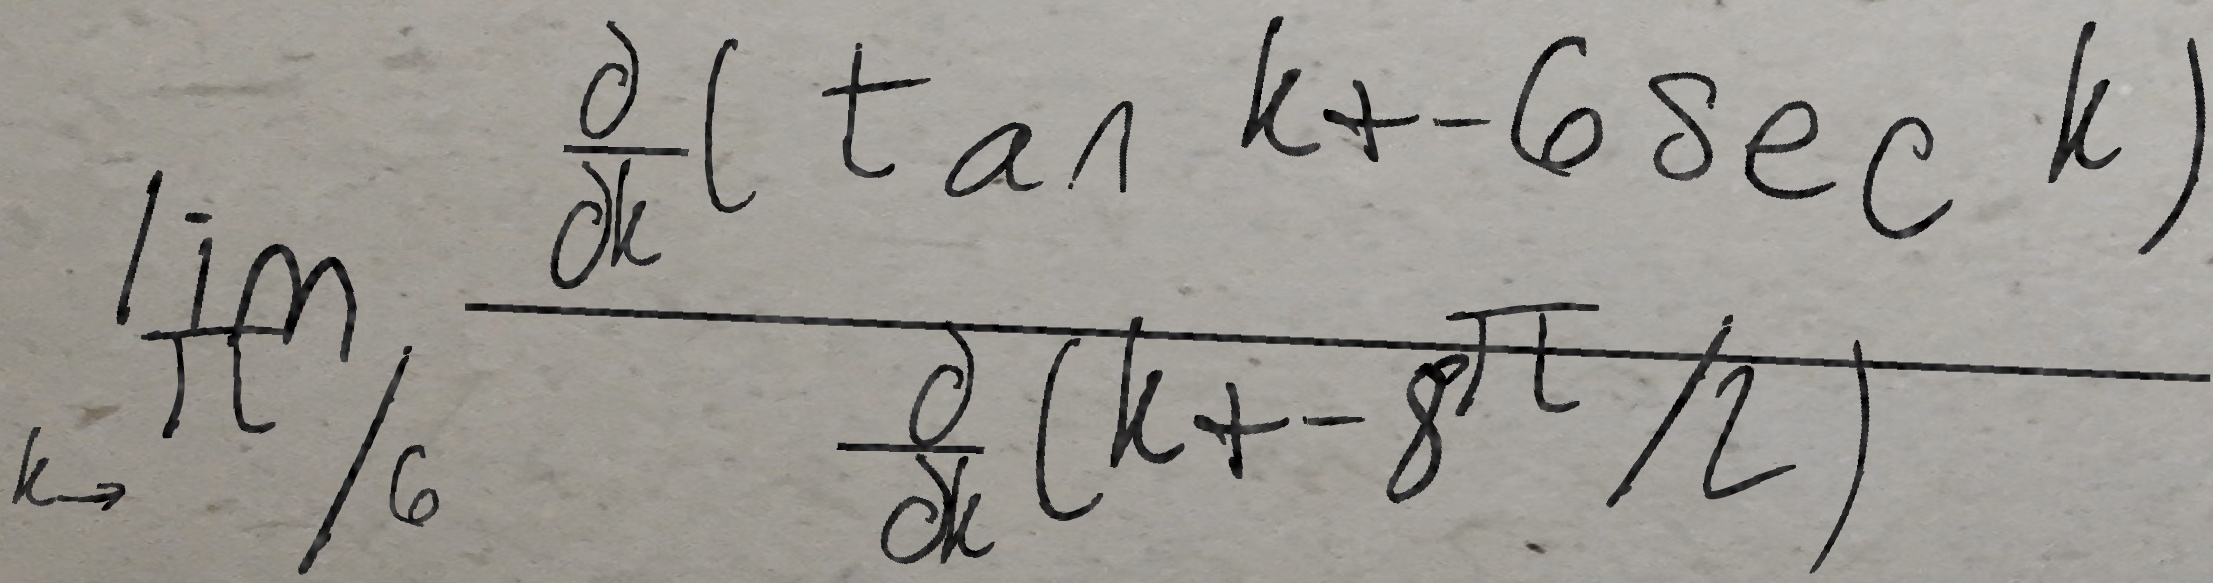 \lim_{k \to \pi/6} \frac{\frac{\partial}{\partial k}(\tan k + -6 \sec k)}{\frac{\partial}{\partial k}(k + -8\pi/2)}